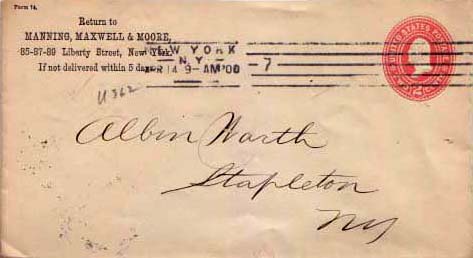 Form 74.
Return to
MANNING, MAXWELL & MOORE,
85-87-89 Liberty Street, New York.
If not delivered within 5 days.
NEW YORK
N.Y.
14 9-AM '00
7
U362
UNITED STATES POSTAGE
Albin Warth
Stapleton
NY